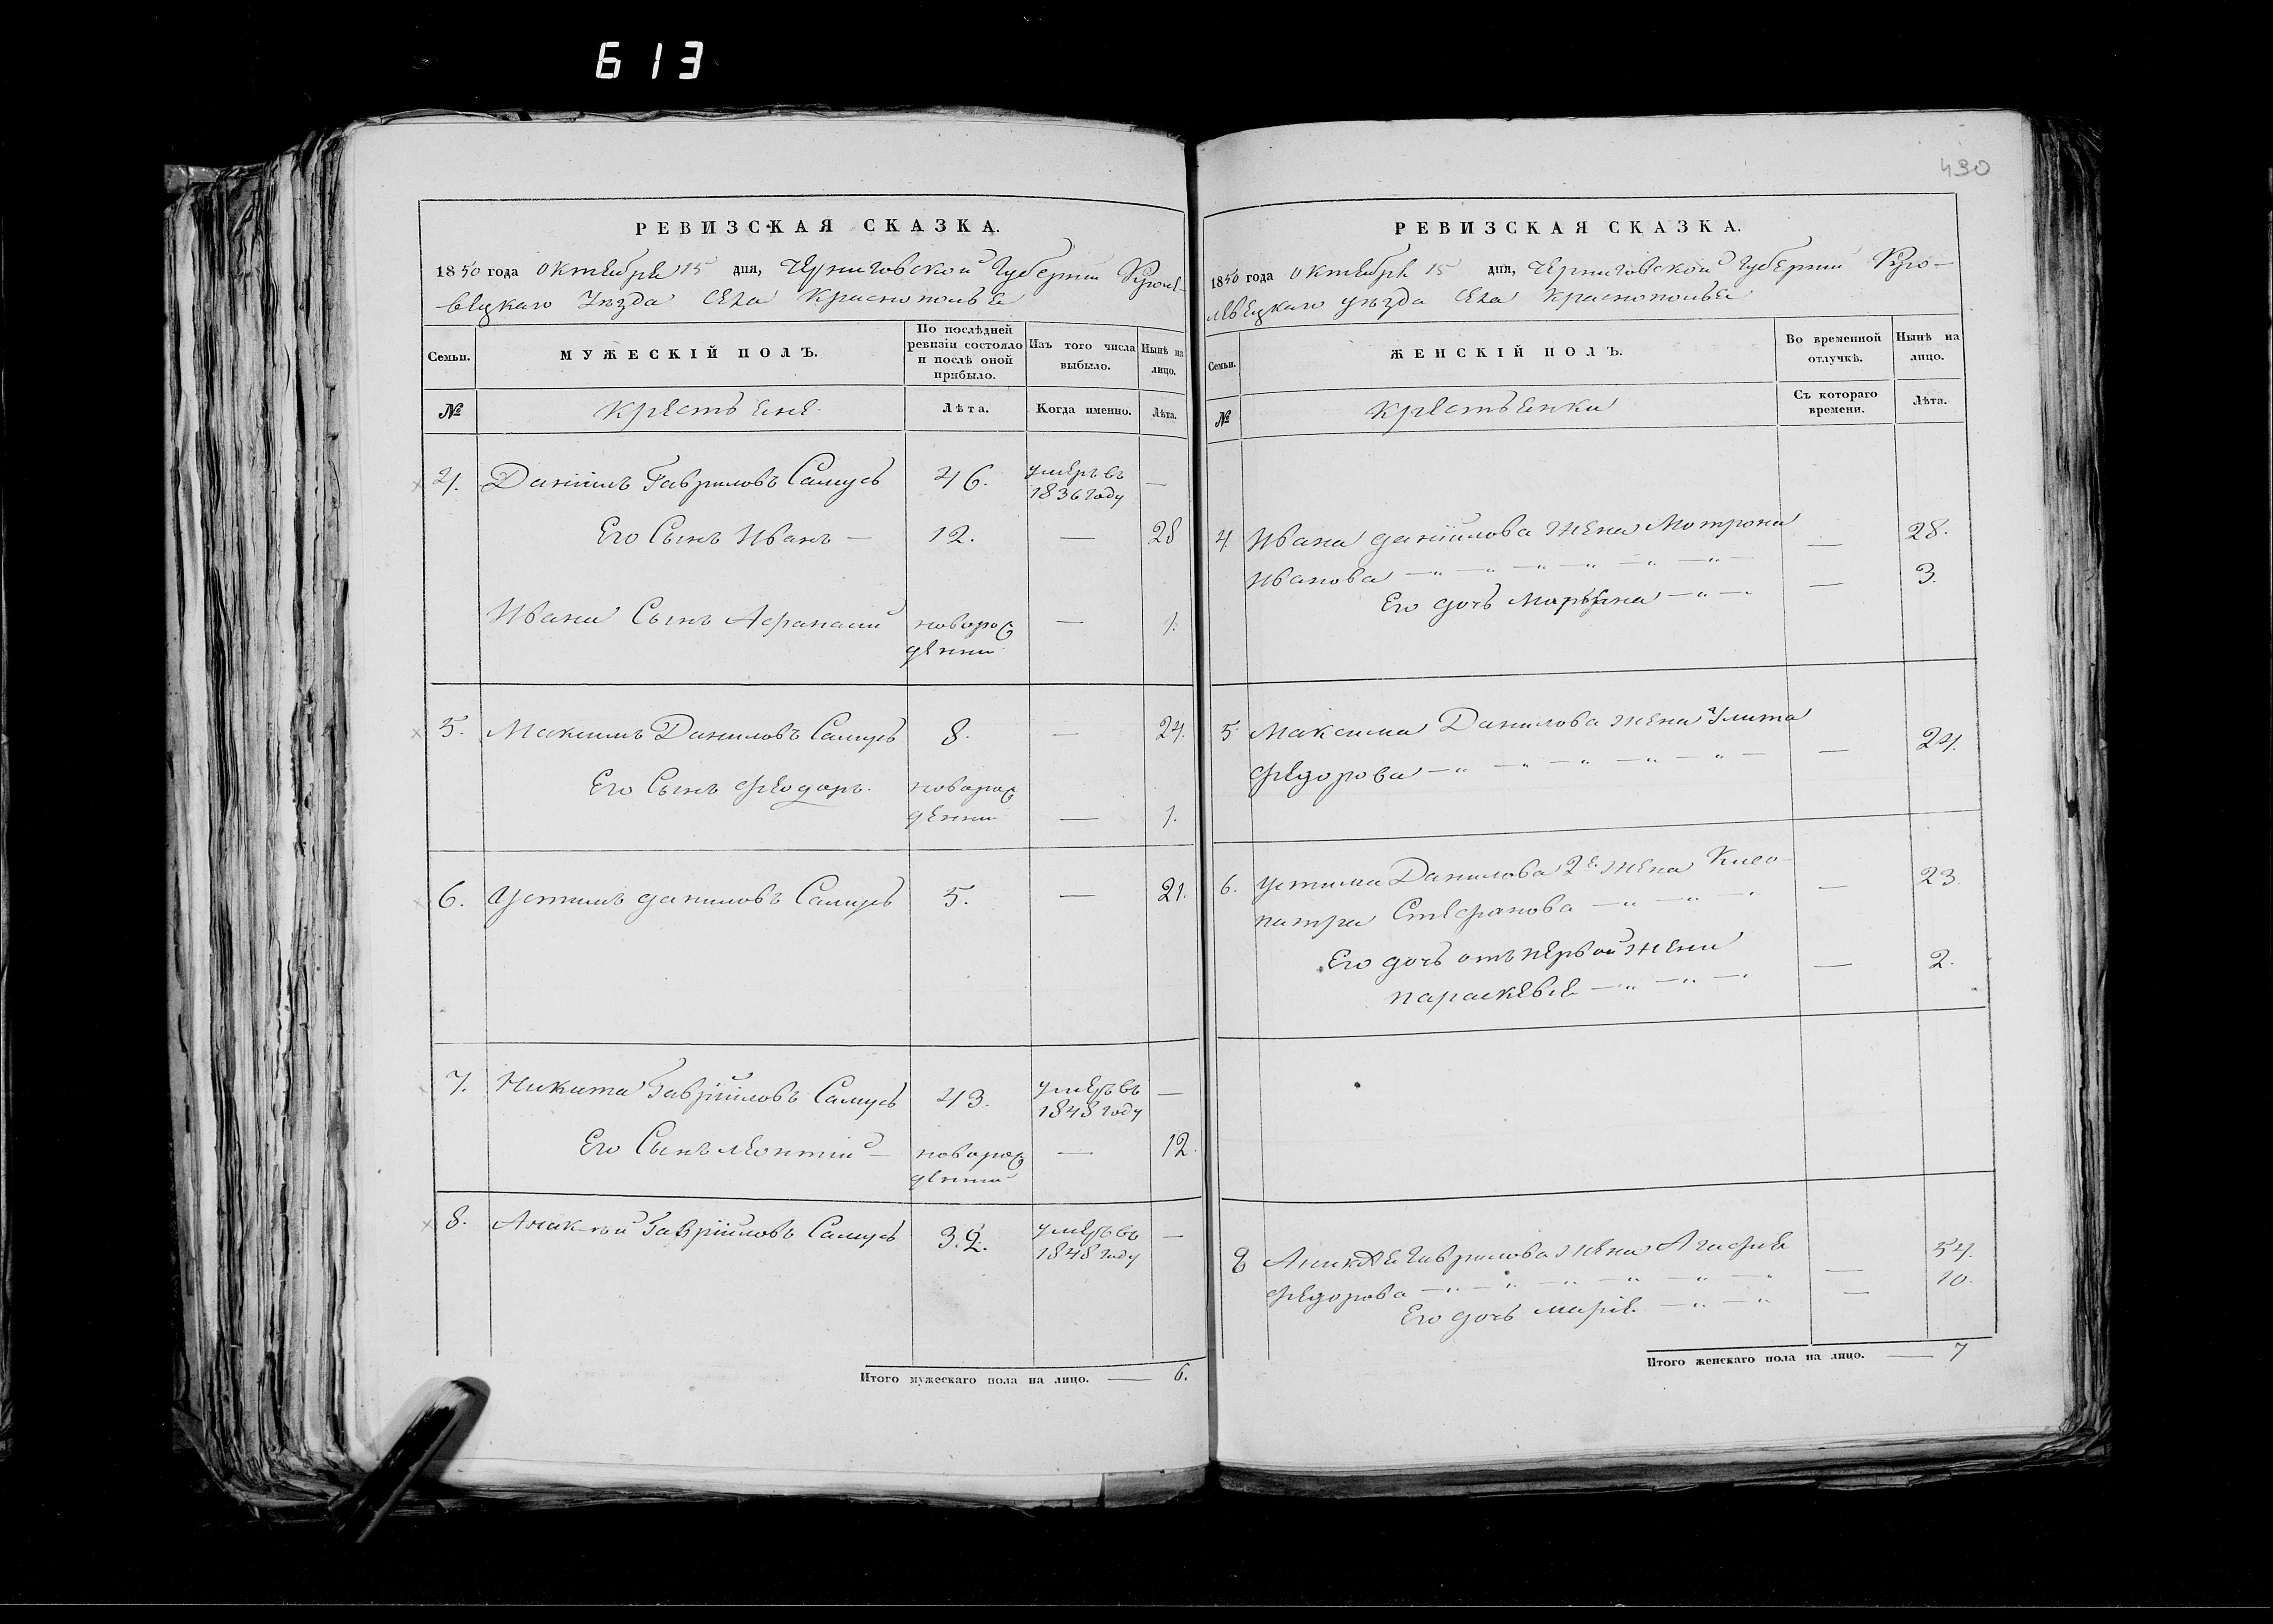 613
430
РЕВИЗСКАЯ СКАЗКА.
1850 года октября 15 дня, Черниговской Губернии Кролe-
вецкаго Уезда Села Краснополья
Семьи.
МУЖЕСКІЙ ПОЛЪ.
По послѣдней ревизіи состояло и послѣ оной прибыло.
Изъ того числа выбыло.
Нынѣ на лицо.
№ крестьяне Лѣта. Когда именно. Лѣта.
4. Даніилъ Гавриловъ Самусь 46. умеръ въ 1836 году —
Его Сынъ Иванъ — 12. — 28
Ивана Сынъ Афанасий новорожденни — 1.
5. Максимъ Даниловъ Самусь 8. — 24.
Его Сынъ Феодоръ. новорожденни — 1.
6. Устимъ даниловъ Самусь 5. — 21.
7. Никита Гавріиловъ Самусь 43. умеръ въ 1848 году —
Его Сынъ леонтій — новорожденний — 12.
8. Гавріиловъ Самусь 32. умеръ въ 1848 году —
Итого мужескаго пола на лицо. — 6.
РЕВИЗСКАЯ СКАЗКА.
1850 года октября 15 дня, Черниговской Губерніи Кро-
левецкаго уезда Села Краснополья
Семьи.
ЖЕНСКІЙ ПОЛЪ.
Во временной отлучкѣ.
Нынѣ на лицо.
№ крестьянки Съ котораго времени. Лѣта.
4. Ивана даніилова жена Мотрона — 28.
Иванова — „ — „ — „ — „ — „ — „ —
Его дочь Марьяна — „ — „ — 3.
5 Максима Данилова жена Улита
Федорова — „ — „ — „ — „ — „ — — 24.
6. устима Данилова 2я жена Клео- — 23.
патра Стефанова — „ — „ — „
Его дочь отъ первой жени — 2.
параскевія — „ — „ — „
8 Гаврилова жена Агафия — 54.
Федорова — „ — „ — „ — „ — „ — „
Его дочь марія — „ — „ — 10.
Итого женскаго пола на лицо. — 7